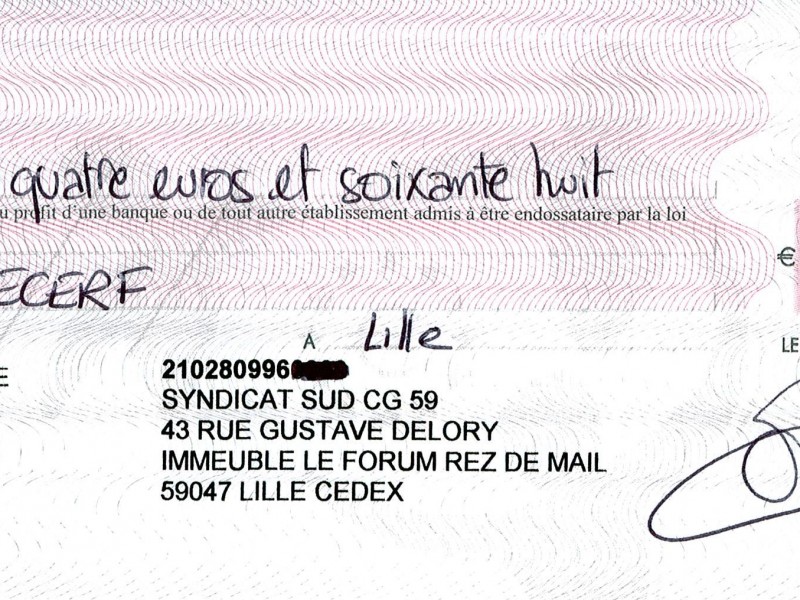 quatre euros et soixante huit
u profit d'une banque ou de tout autre établissement admis à être endossataire par la loi
€
ECERF
A Lille
LE
E
210280996
SYNDICAT SUD CG 59
43 RUE GUSTAVE DELORY
IMMEUBLE LE FORUM REZ DE MAIL
59047 LILLE CEDEX